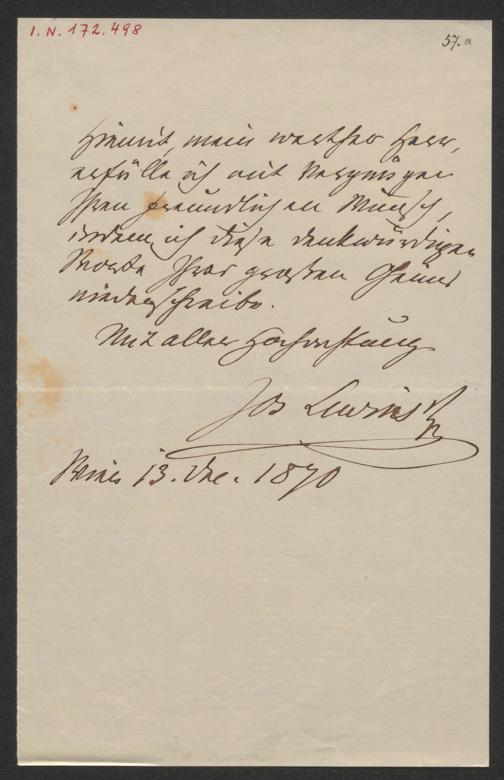 I. N. 172.498
57. a
Hiemit, mein werther Herr,
erfülle ich mit Vergnügen
Ihren freundlichen Wunsch,
indem ich diese denkwürdigen
Worte Ihres großen
niederschreibe.
Mit aller Hochachtung
Jos Lewinsky
Wien 13. Dec. 1870